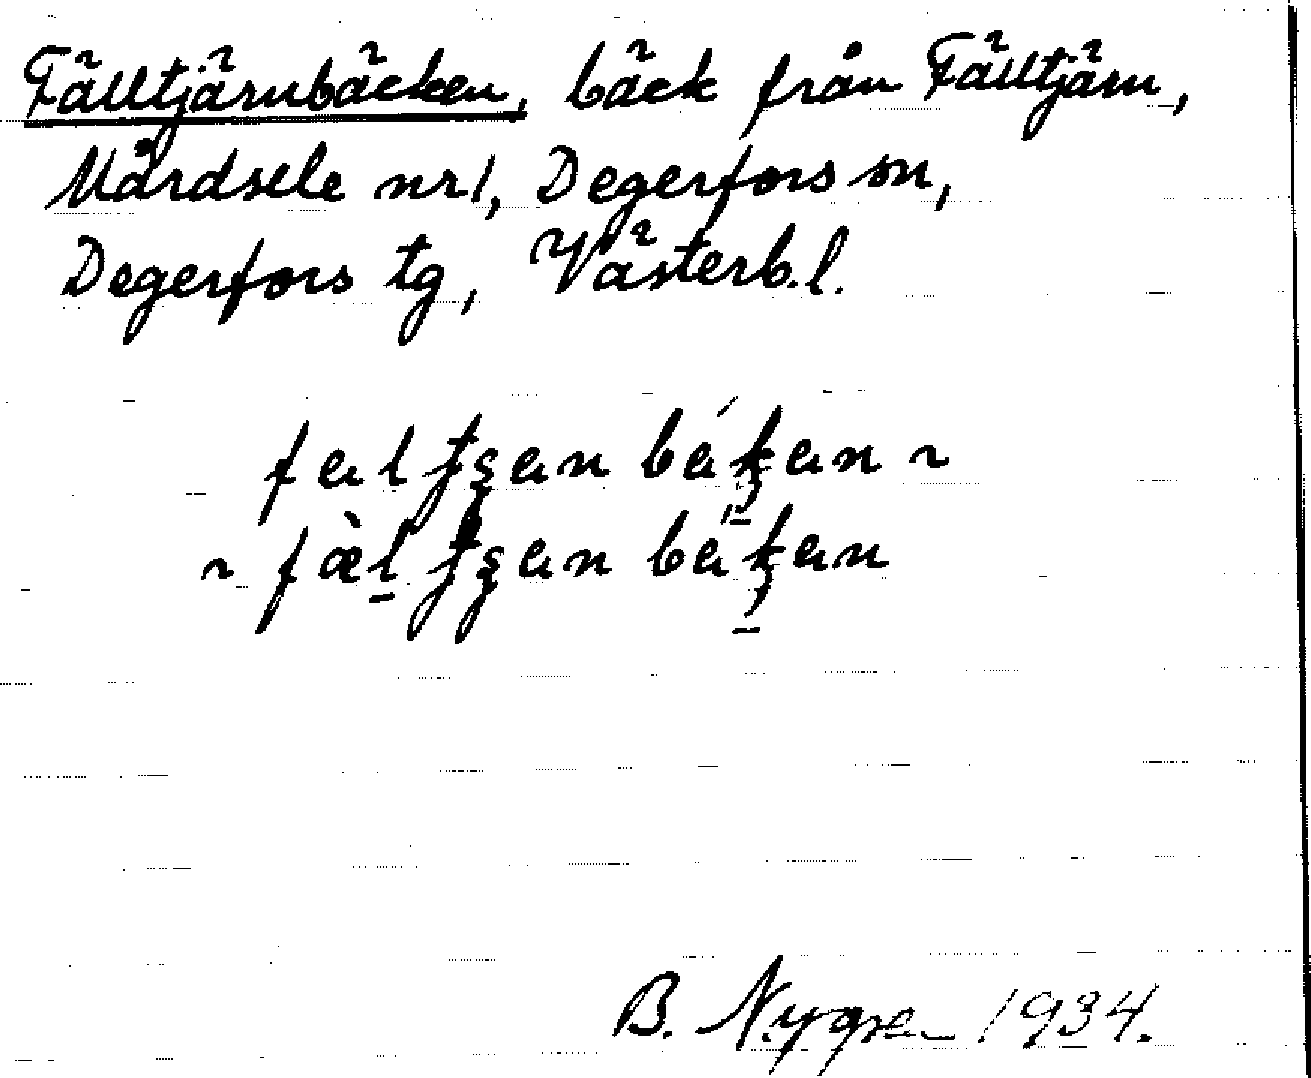 Fälltjärnbäcken, bäck från Fälltjärn,
Mårdsele nr 1, Degerfors sn,
Degerfors tg, Västerb. l.
B. Nygren 1934.